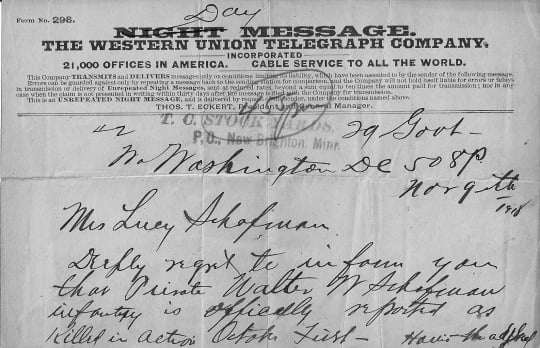 Day
Form No. 298.
NIGHT MESSAGE.
THE WESTERN UNION TELEGRAPH COMPANY.
INCORPORATED
21,000 OFFICES IN AMERICA. CABLE SERVICE TO ALL THE WORLD.
This Company TRANSMITS and DELIVERS messages only on conditions limiting its liability, which have been assented to by the sender of the following message.
Errors can be guarded against only by repeating a message back to the sending station for comparison, and the Company will not hold itself liable for errors or delays
in transmission or delivery of Unrepeated Night Messages, sent at reduced rates, beyond a sum equal to ten times the amount paid for transmission; nor in any
case when the claim is not presented in writing within thirty days after the message is filed with the Company for transmission.
This is an UNREPEATED NIGHT MESSAGE, and is delivered by request of the sender, under the conditions named above.
THOS. T. ECKERT, President and General Manager.
T. C. STOCK YARDS,
P. O., New Brighton, Minn.
42 29 Govt
Washington DC 508P
Nov 9th
1918
Mrs Lucy Schofman
Deeply regret to inform you
that Private Walter W Schofman
infantry is officially reported as
Killed in action October First Harris